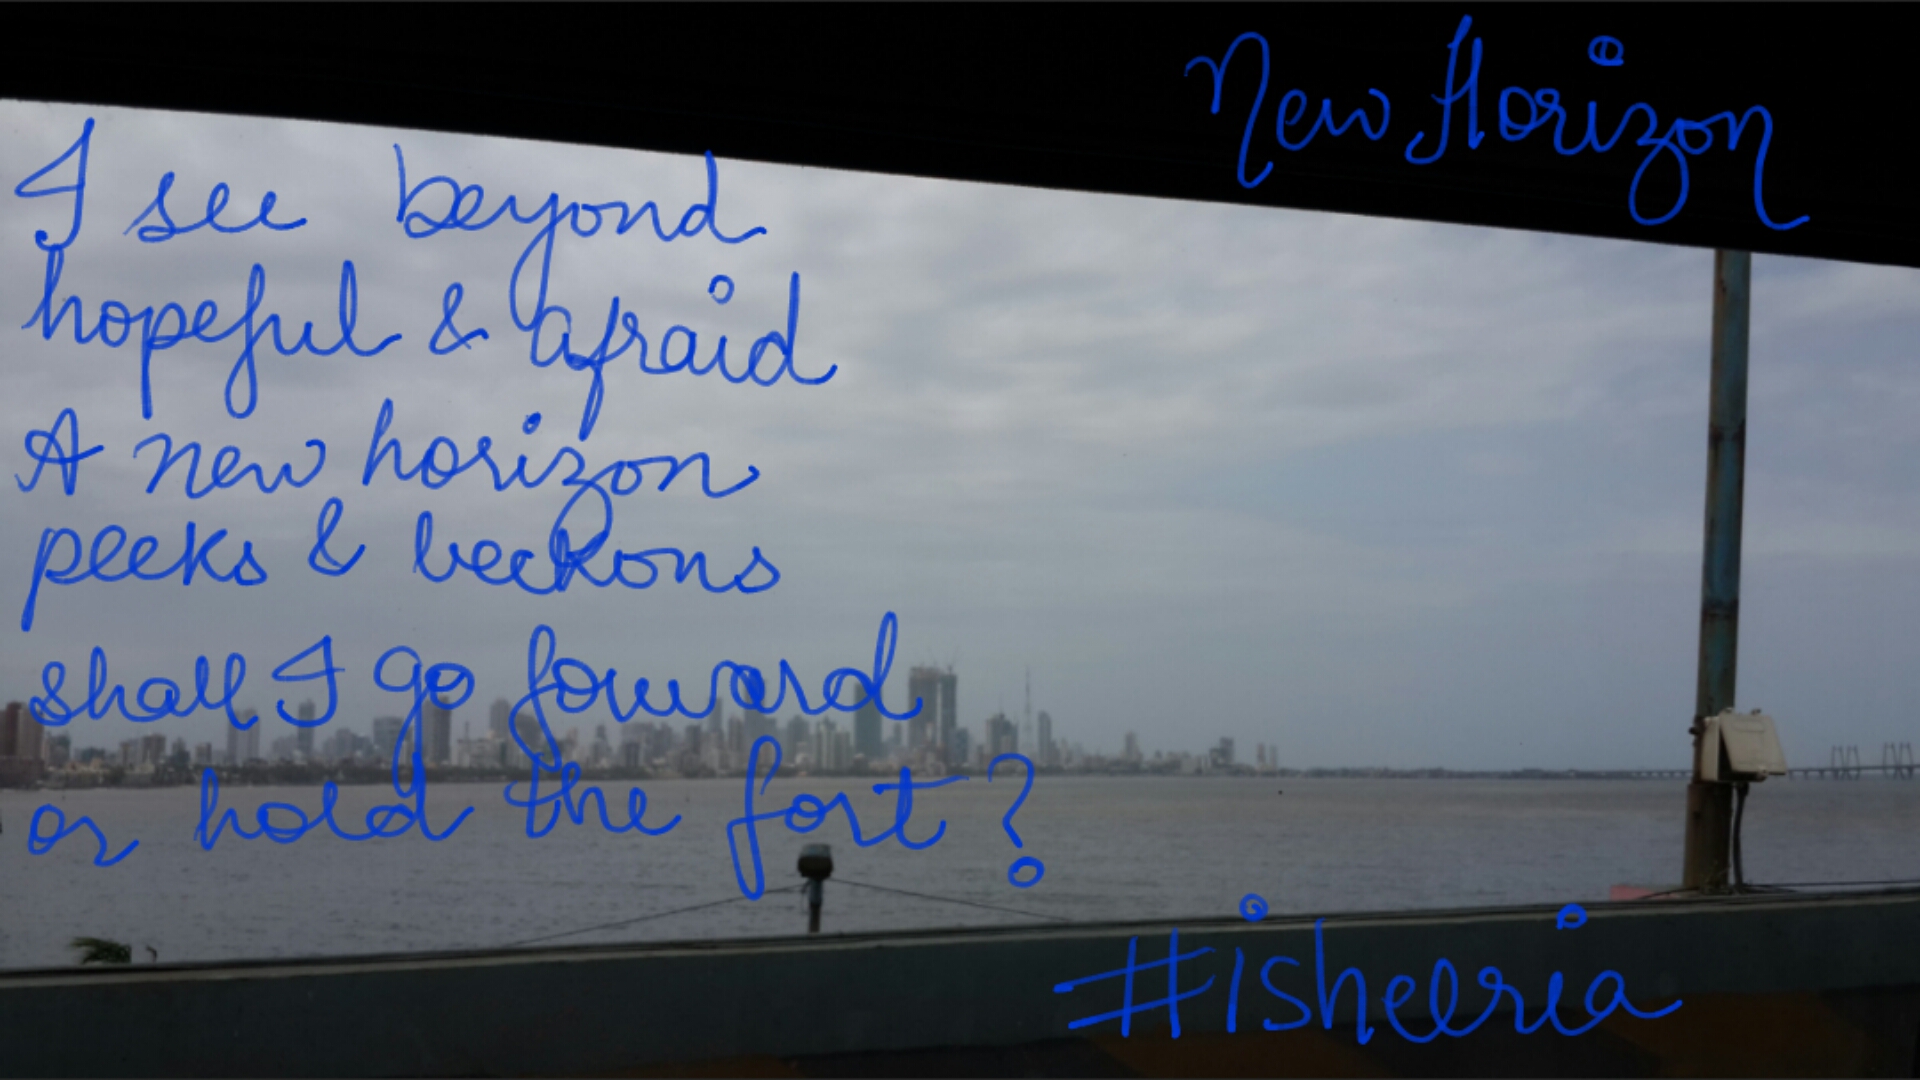 New Horizon
I see beyond
hopeful & afraid
A new horizon
peeks & beckons
shall I go forward
or hold the fort?
#isheeria